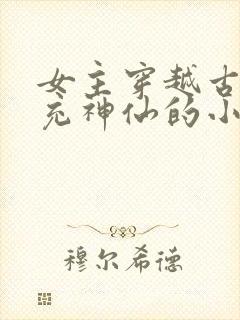 女主穿越古
充神仙的小
穆尔希德